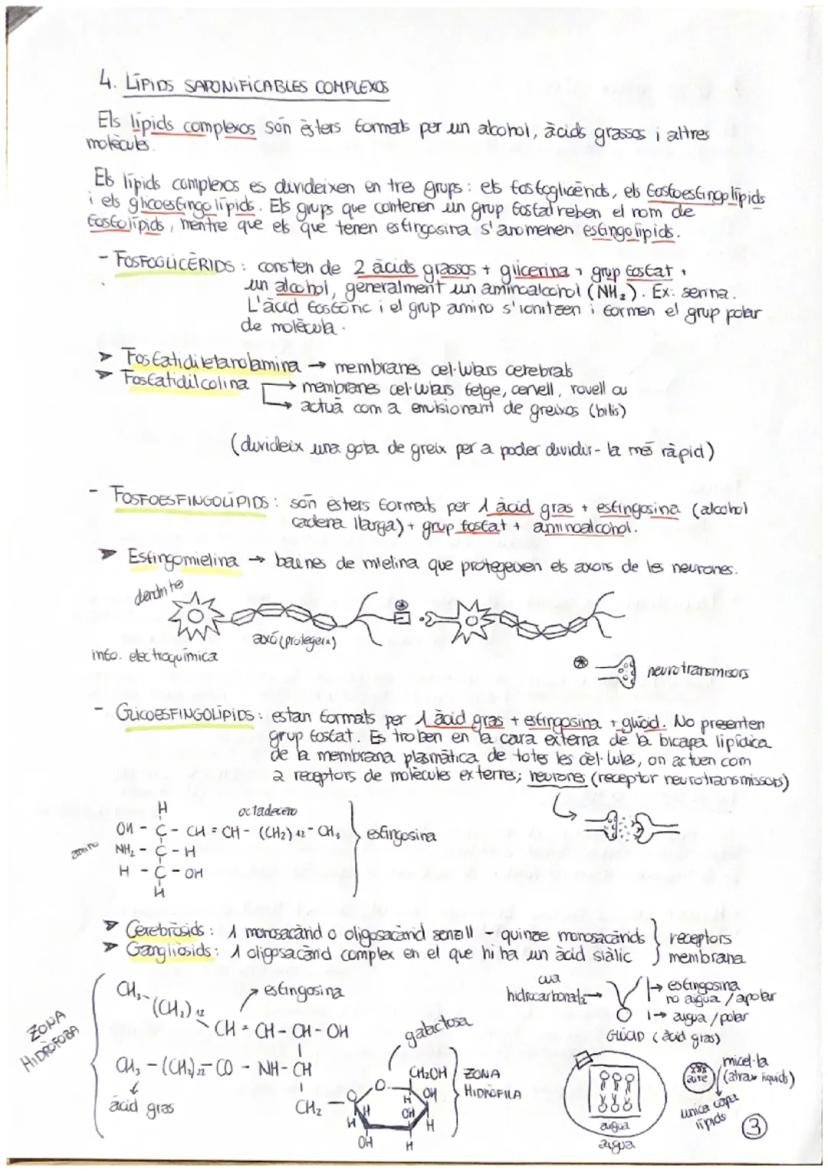 4. LÍPIDS SAPONIFICABLES COMPLEXOS
Els lípids complexos són èsters formats per un alcohol, àcids grassos i altres
molècules.
Els lípids complexos es divideixen en tres grups: els fosfoglicèrids, els fosfoesfingolípids
i els glicoesfingolípids. Els grups que contenen un grup fosfat reben el nom de
fosfolípids, mentre que els que tenen esfingosina s'anomenen esfingolípids.
- FOSFOGLICÈRIDS: consten de 2 àcids grassos + glicerina + grup fosfat +
un alcohol, generalment un aminoalcohol (NH₂). Ex: serina.
L'àcid fosfòric i el grup amino s'ionitzen i formen el grup polar
de molècula.
➤ Fosfatidiletanolamina → membranes cel·lulars cerebrals
➤ Fosfatidilcolina → membranes cel·lulars fetge, cervell, rovell ou
→ actuà com a emulsionant de greixos (bilis)
(divideix una gota de greix per a poder dividir-la més ràpid)
- FOSFOESFINGOLÍPIDS: són èsters formats per 1 àcid gras + esfingosina (alcohol
cadena llarga) + grup fosfat + aminoalcohol.
➤ Esfingomielina → baines de mielina que protegeixen els axons de les neurones.
dendrites
axó (protegeix)
info. electroquímica
neurotransmisors
- GLICOESFINGOLÍPIDS: estan formats per 1 àcid gras + esfingosina + glúcid. No presenten
grup fosfat. Es troben en la cara externa de la bicapa lipídica
de la membrana plasmàtica de totes les cèl·lules, on actuen com
a receptors de molècules externes; neurones (receptor neurotransmissors)
H
octadecero
OH - C - CH = CH - (CH₂)₁₂ - CH₃
esfingosina
amino
NH₂ - C - H
H - C - OH
H
➤ Cerebròsids: 1 monosacàrid o oligosacàrid senzill - quinze monosacàrids
➤ Gangliòsids: 1 oligosacàrid complex en el que hi ha un àcid siàlic
receptors
membrana
ZONA
HIDRÒFOBA
CH₃ - (CH₂)₁₂
→ esfingosina
CH = CH - CH - OH
CH₃ - (CH₂)₂₂ - CO - NH - CH
àcid gras
CH₂
galactosa
O
O
CH₂OH
H
OH
OH
H
H
H
OH
H
ZONA
HIDRÒFILA
cua
hidrocarbonada →
→ esfingosina
no aigua / apolar
→ aigua / polar
GLÚCID (àcid gras)
aigua
aigua
aire
micel·la
(atrau líquids)
unica capa
lípids
3